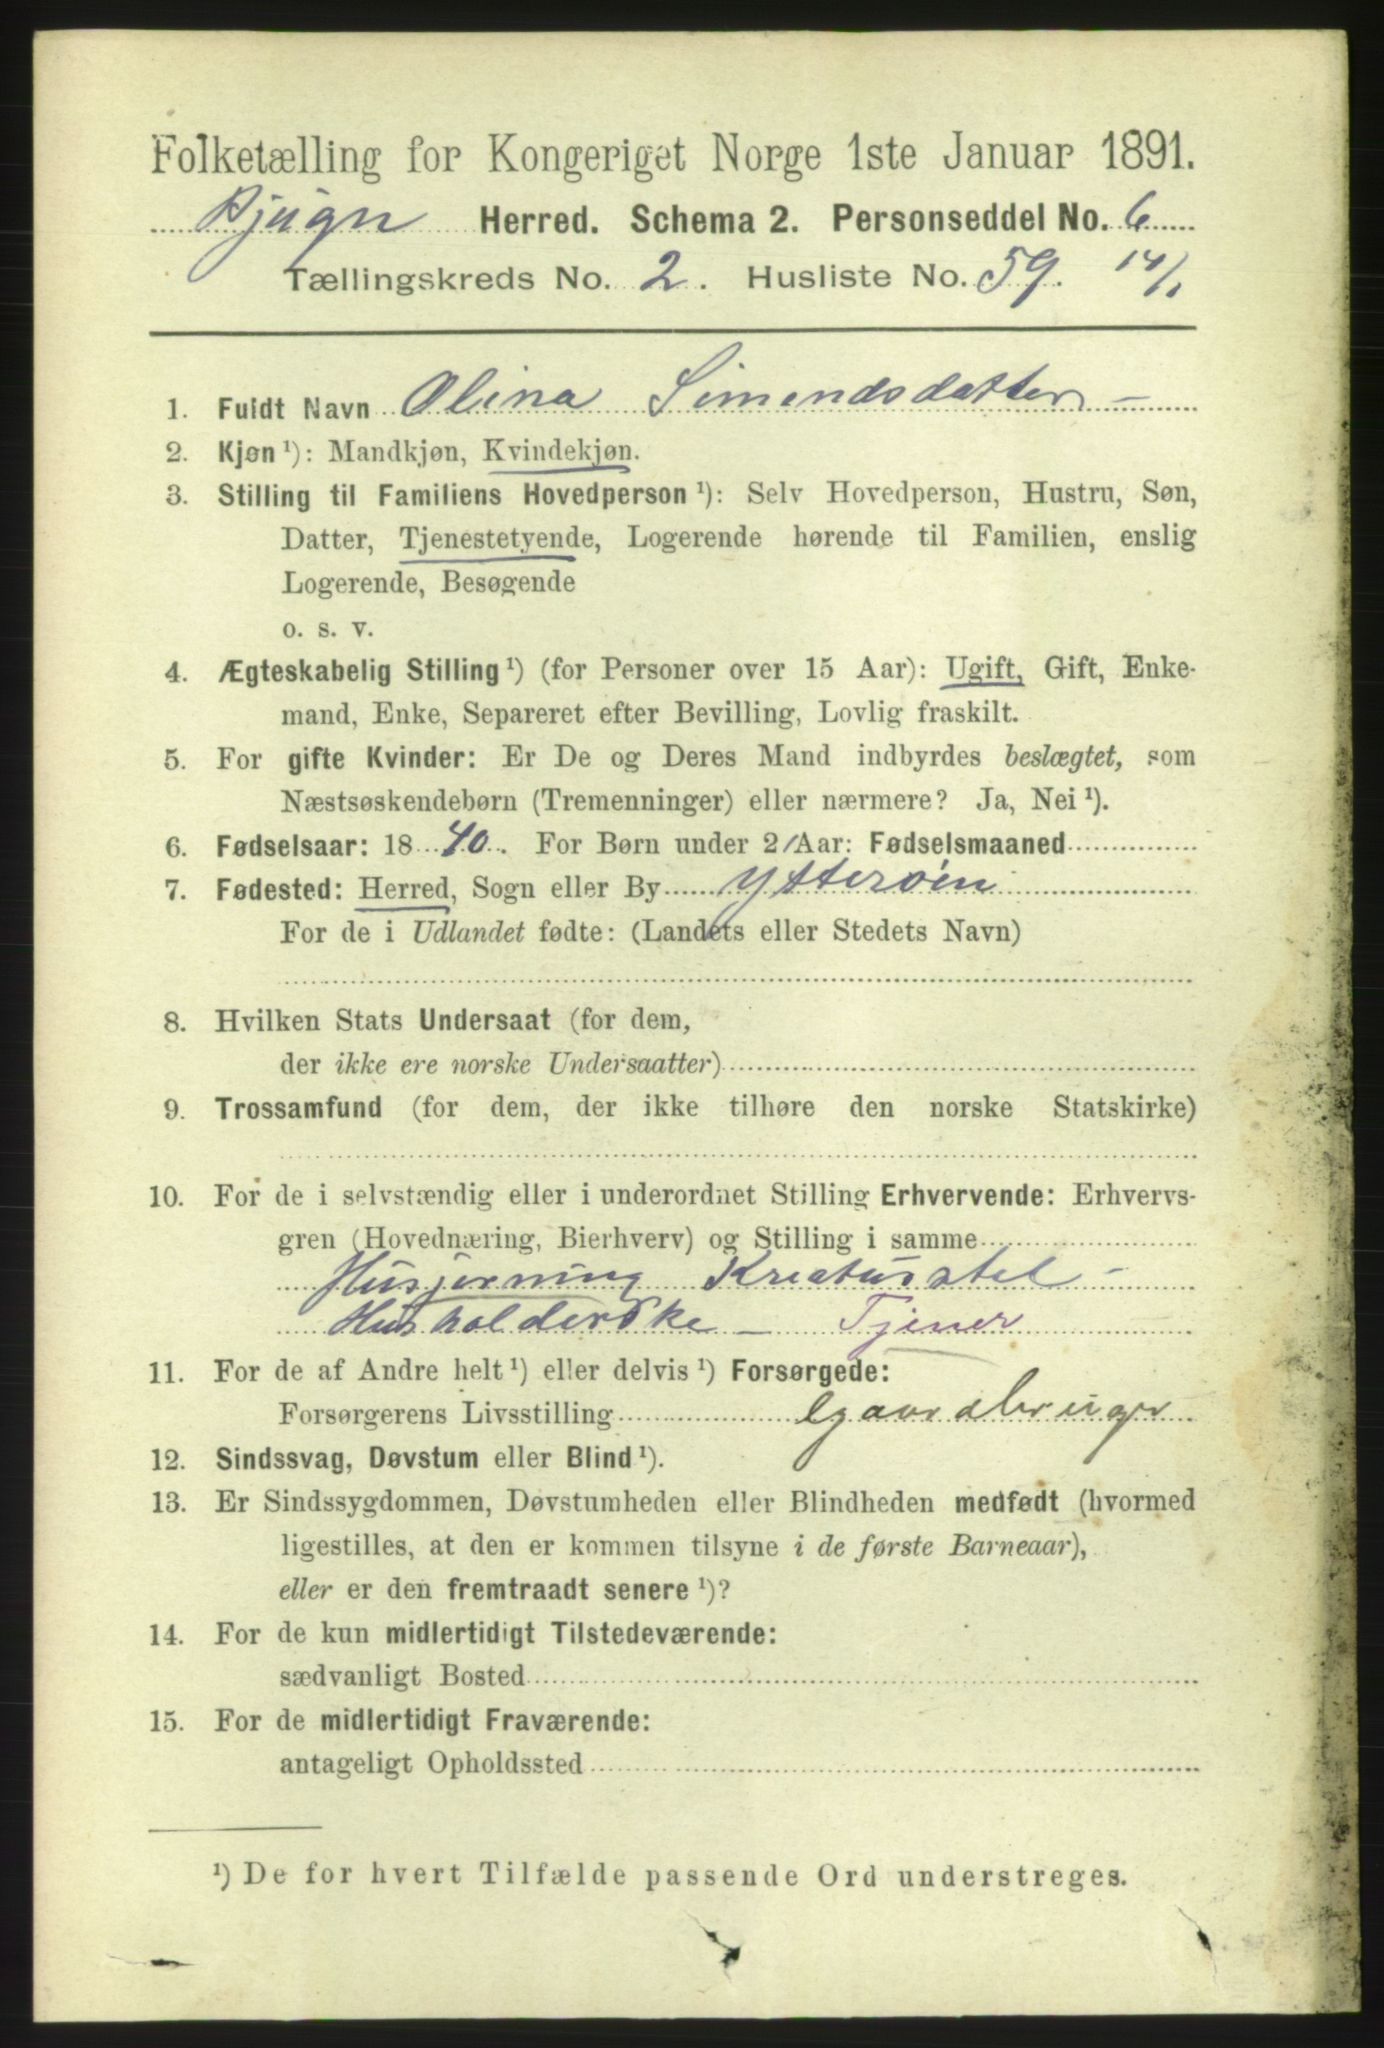 Folketælling for Kongeriget Norge 1ste Januar 1891.
Bjugn Herred. Schema 2. Personseddel No. 6
Tællingskreds No. 2. Husliste No. 59. 14/1
1. Fuldt Navn Olina Simendsdatter –
2. Kjøn ¹): Mandkjøn, Kvindekjøn.
3. Stilling til Familiens Hovedperson ¹): Selv Hovedperson, Hustru, Søn,
Datter, Tjenestetyende, Logerende hørende til Familien, enslig
Logerende, Besøgende
o. s. v.
4. Ægteskabelig Stilling ¹) (for Personer over 15 Aar): Ugift, Gift, Enke-
mand, Enke, Separeret efter Bevilling, Lovlig fraskilt.
5. For gifte Kvinder: Er De og Deres Mand indbyrdes beslægtet, som
Næstsøskendebørn (Tremenninger) eller nærmere? Ja, Nei ¹).
6. Fødselsaar: 1840. For Børn under 2 Aar: Fødselsmaaned
7. Fødested: Herred, Sogn eller By Ytterøin
For de i Udlandet fødte: (Landets eller Stedets Navn)
8. Hvilken Stats Undersaat (for dem,
der ikke ere norske Undersaatter)
9. Trossamfund (for dem, der ikke tilhøre den norske Statskirke)
10. For de i selvstændig eller i underordnet Stilling Erhvervende: Erhvervs-
gren (Hovednæring, Bierhverv) og Stilling i samme
Husjerning Kreaturstel –
Husholderske – Tjener
11. For de af Andre helt ¹) eller delvis ¹) Forsørgede:
Forsørgerens Livsstilling Gaardbruger
12. Sindssvag, Døvstum eller Blind ¹).
13. Er Sindssygdommen, Døvstumheden eller Blindheden medfødt (hvormed
ligestilles, at den er kommen tilsyne i de første Barneaar),
eller er den fremtraadt senere ¹)?
14. For de kun midlertidigt Tilstedeværende:
sædvanligt Bosted
15. For de midlertidigt Fraværende:
antageligt Opholdssted
¹) De for hvert Tilfælde passende Ord understreges.